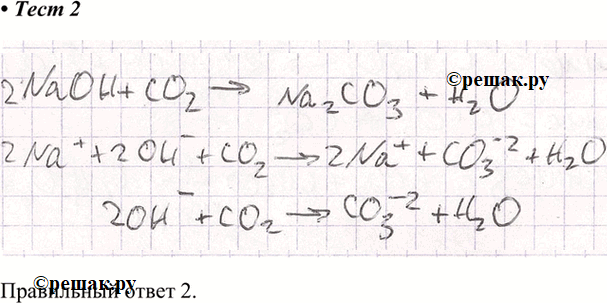 • Тест 2
2NaOH + CO₂ → Na₂CO₃ + H₂O
©решак.ру
2Na⁺ + 2OH⁻ + CO₂ → 2Na⁺ + CO₃⁻² + H₂O
2OH⁻ + CO₂ → CO₃⁻² + H₂O
©решак.ру
Правильный ответ 2.